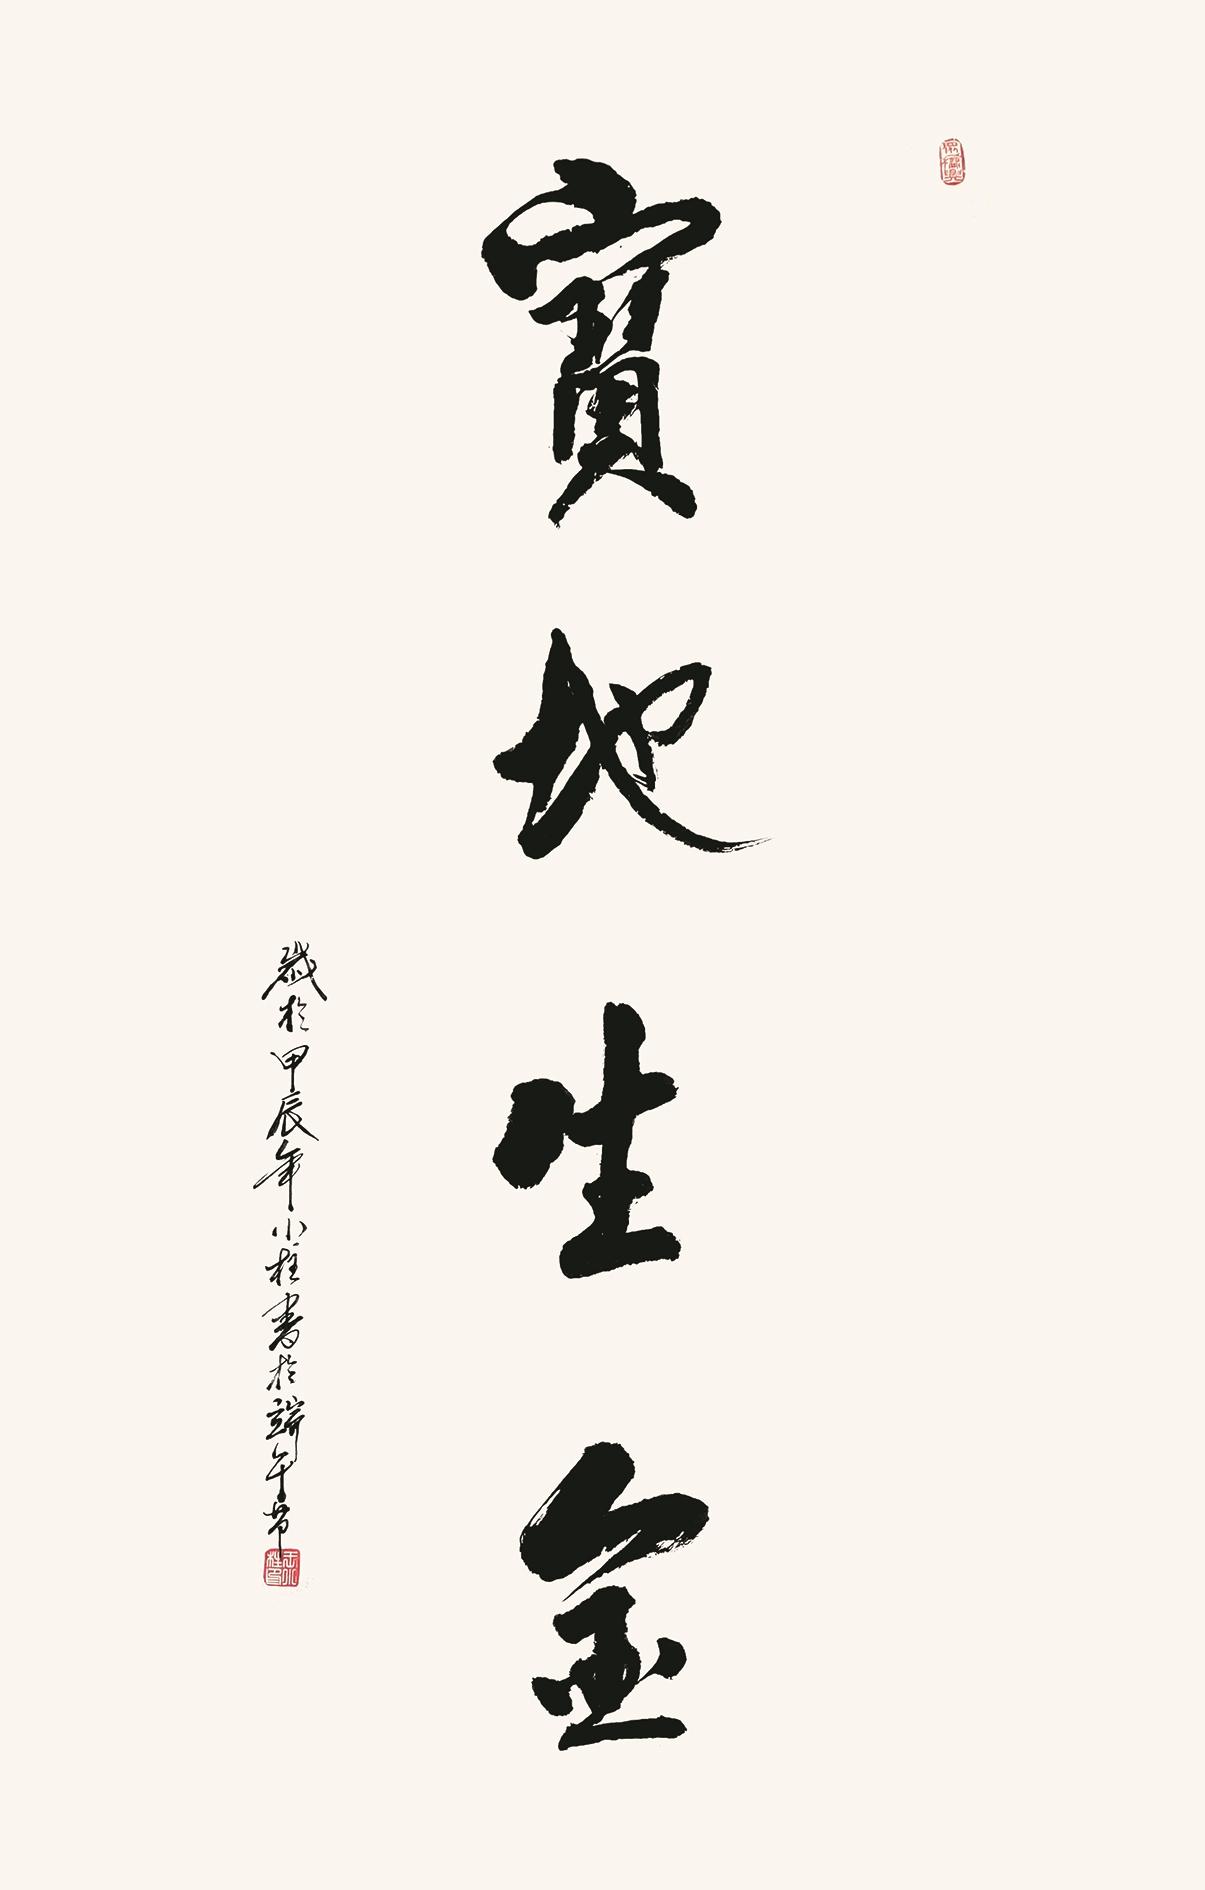 寶地生金
歲於甲辰年小柱書於端午节